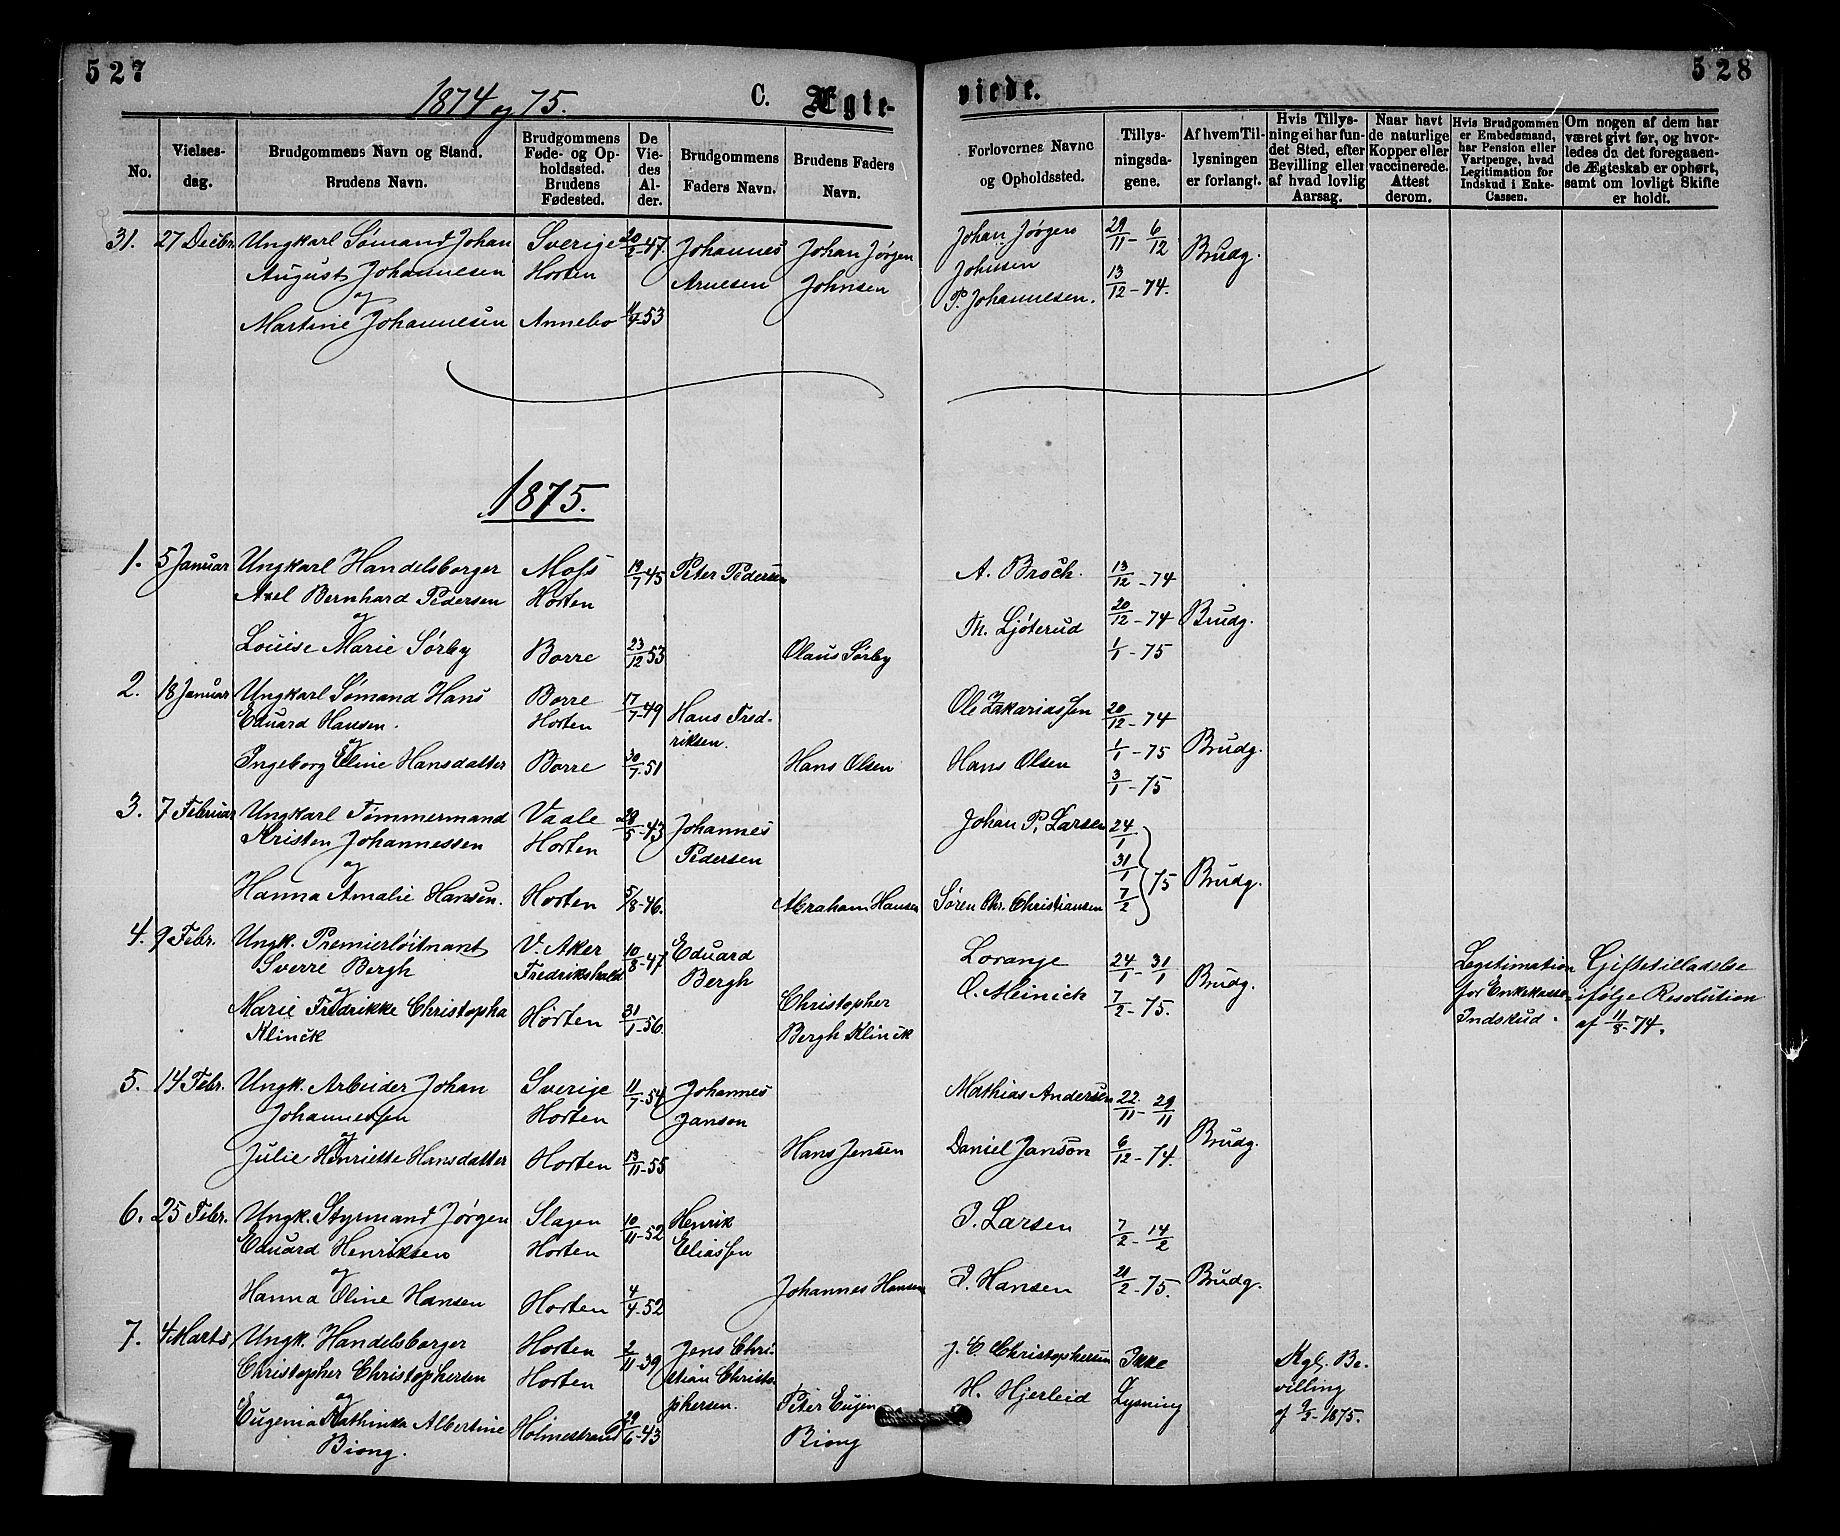 527
528
1874 og 75.
C. Ægte-
viede.
No.
Vielses-
dag.
Brudgommens Navn og Stand.
Brudens Navn.
Brudgommens
Føde- og Op-
holdssted.
Brudens
Fødested.
De
Vie-
des
Al-
der.
Brudgommens
Faders Navn.
Brudens Faders
Navn.
Forlovernes Navne
og Opholdssted.
Tillys-
ningsda-
gene.
Af hvem Til-
lysningen
er forlangt.
Hvis Tillys-
ning ei har fun-
det Sted, efter
Bevilling eller
af hvad lovlig
Aarsag.
Naar havt
de naturlige
Kopper eller
vaccinerede.
Attest
derom.
Hvis Brudgommen
er Embedsmand,
har Pension eller
Vartpenge, hvad
Legitimation for
Indskud i Enke-
Cassen.
Om nogen af dem har
været givt før, og hvor-
ledes da det foregaaen-
de Ægteskab er ophørt,
samt om lovligt Skifte
er holdt.
31. 27 Decbr. Ungkarl Sømand Johan Sverige 20/2-47. Johannes Johan Jørgen Johan Jørgen 29/11 - 6/12 Brudg.
August Johannesen Horten Arnesen Johnsen Johnsen 13/12 - 74.
og
Martine Johannesen Annebo 11/4-53 P. Johannesen.
1875.
1. 5 Januar Ungkarl Handelsborger Moss 19/7-45 Peter Pedersen A. Broch. 13/12 - 74
Axel Bernhard Pedersen Horten 20/12 - 74 Brudg.
og
Louise Marie Sørby Borre 23/12 53 Olaus Sørby Th. Ljøterud 1/1 - 75
2. 18 Januar Ungkarl Sømand Hans Borre 17/7-49 Hans Fred- Ole Zakariassen 20/12 - 74
Eduard Hansen. Horten riksen. 1/1 - 75 Brudg.
og
Ingeborg Eline Hansdatter Borre 30/7-51 Hans Olsen Hans Olsen 3/1 - 75
3. 7 Februar Ungkarl Tømmermand Vaale 28/5-43 Johannes Johan P. Larsen 24/1
Kristen Johannessen Horten Pedersen 31/1 75 Brudg.
og
Hanna Amalie Hansen. Horten 5/8-46. Abraham Hansen Søren Chr. Christiansen 7/2
4. 9 Febr. Ungk. Premierløitnant V. Aker 10/8-47 Eduard Lorange 24/1 - 31/1 Brudg. Legitimation Giftetilladelse
Sverre Bergh Fredrikshald Bergh for Enkekasse- ifølge Resolution
og
Marie Fredrikke Christopha Horten 31/1-56. Christopher O. Meinich 7/2 - 75. Indskud. af 11/8-74.
Klinck Bergh Klinck
5. 14 Febr. Ungk. Arbeider Johan Sverige 11/7-54 Johannes Mathias Andersen 22/11 - 29/11
Johannessen Horten Janson Brudg.
og
Julie Henriette Hansdatter Horten 13/11-55 Hans Jensen Daniel Janson 6/12 - 74.
6. 25 Febr. Ungk. Styrmand Jørgen Slagen 10/11-52 Henrik J. Larsen 7/2 - 14/2
Eduard Henriksen Horten Eliassen
og
Hanna Oline Hansen Horten 4/4-52 Johannes Hansen J. Hansen 21/2 - 75. Brudg.
7. 4 Marts, Ungk. Handelsborger Horten 2/11-39 Jens Chri- J. C. Christophersen Ikke Kgl. Be-
Christopher Christophersen Horten stian Christo- H. Hjerleid Lysning villing
og phersen.
Eugenia Kathinka Albertine Holmestrand 29/6-43 Peter Eugen af 9/2-1875.
Biong. Biong